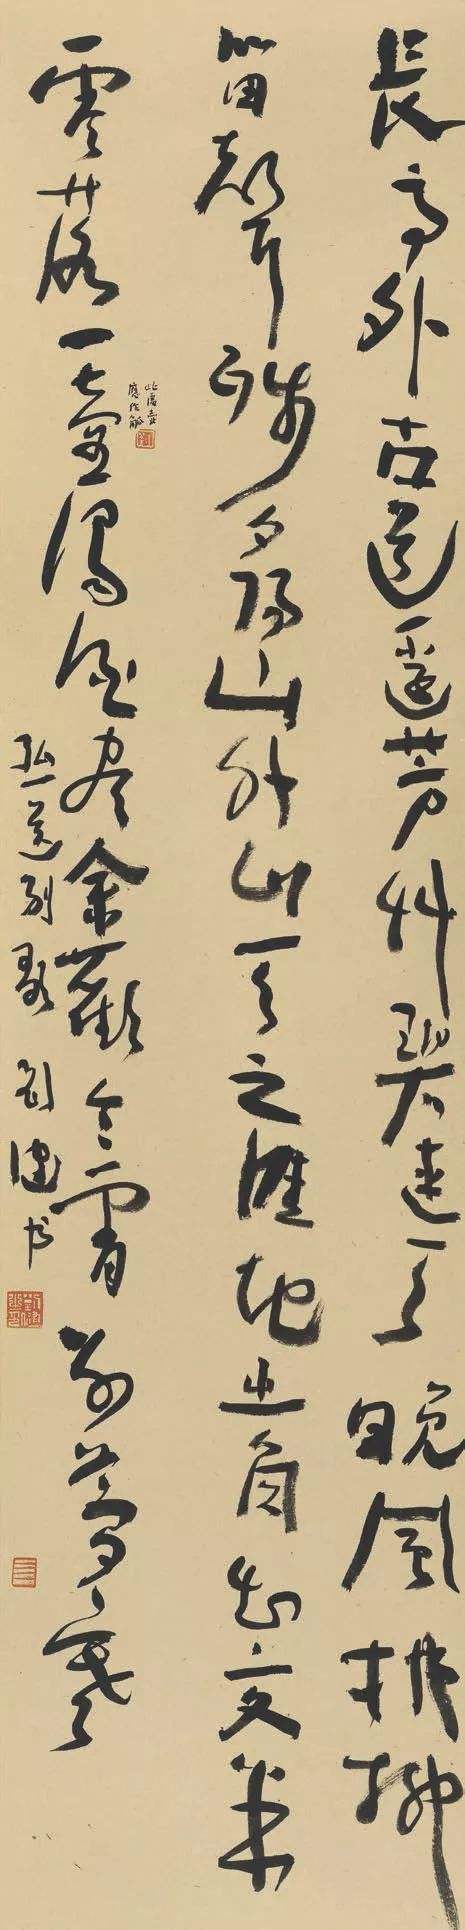 長亭外古道邊芳艸碧連天晚風拂柳
笛聲殘夕陽山外山天之涯地之角知交半
零落一壺濁酒尽余歡今宵別夢寒
此處壺
應作
弘一送別歌 劉健书